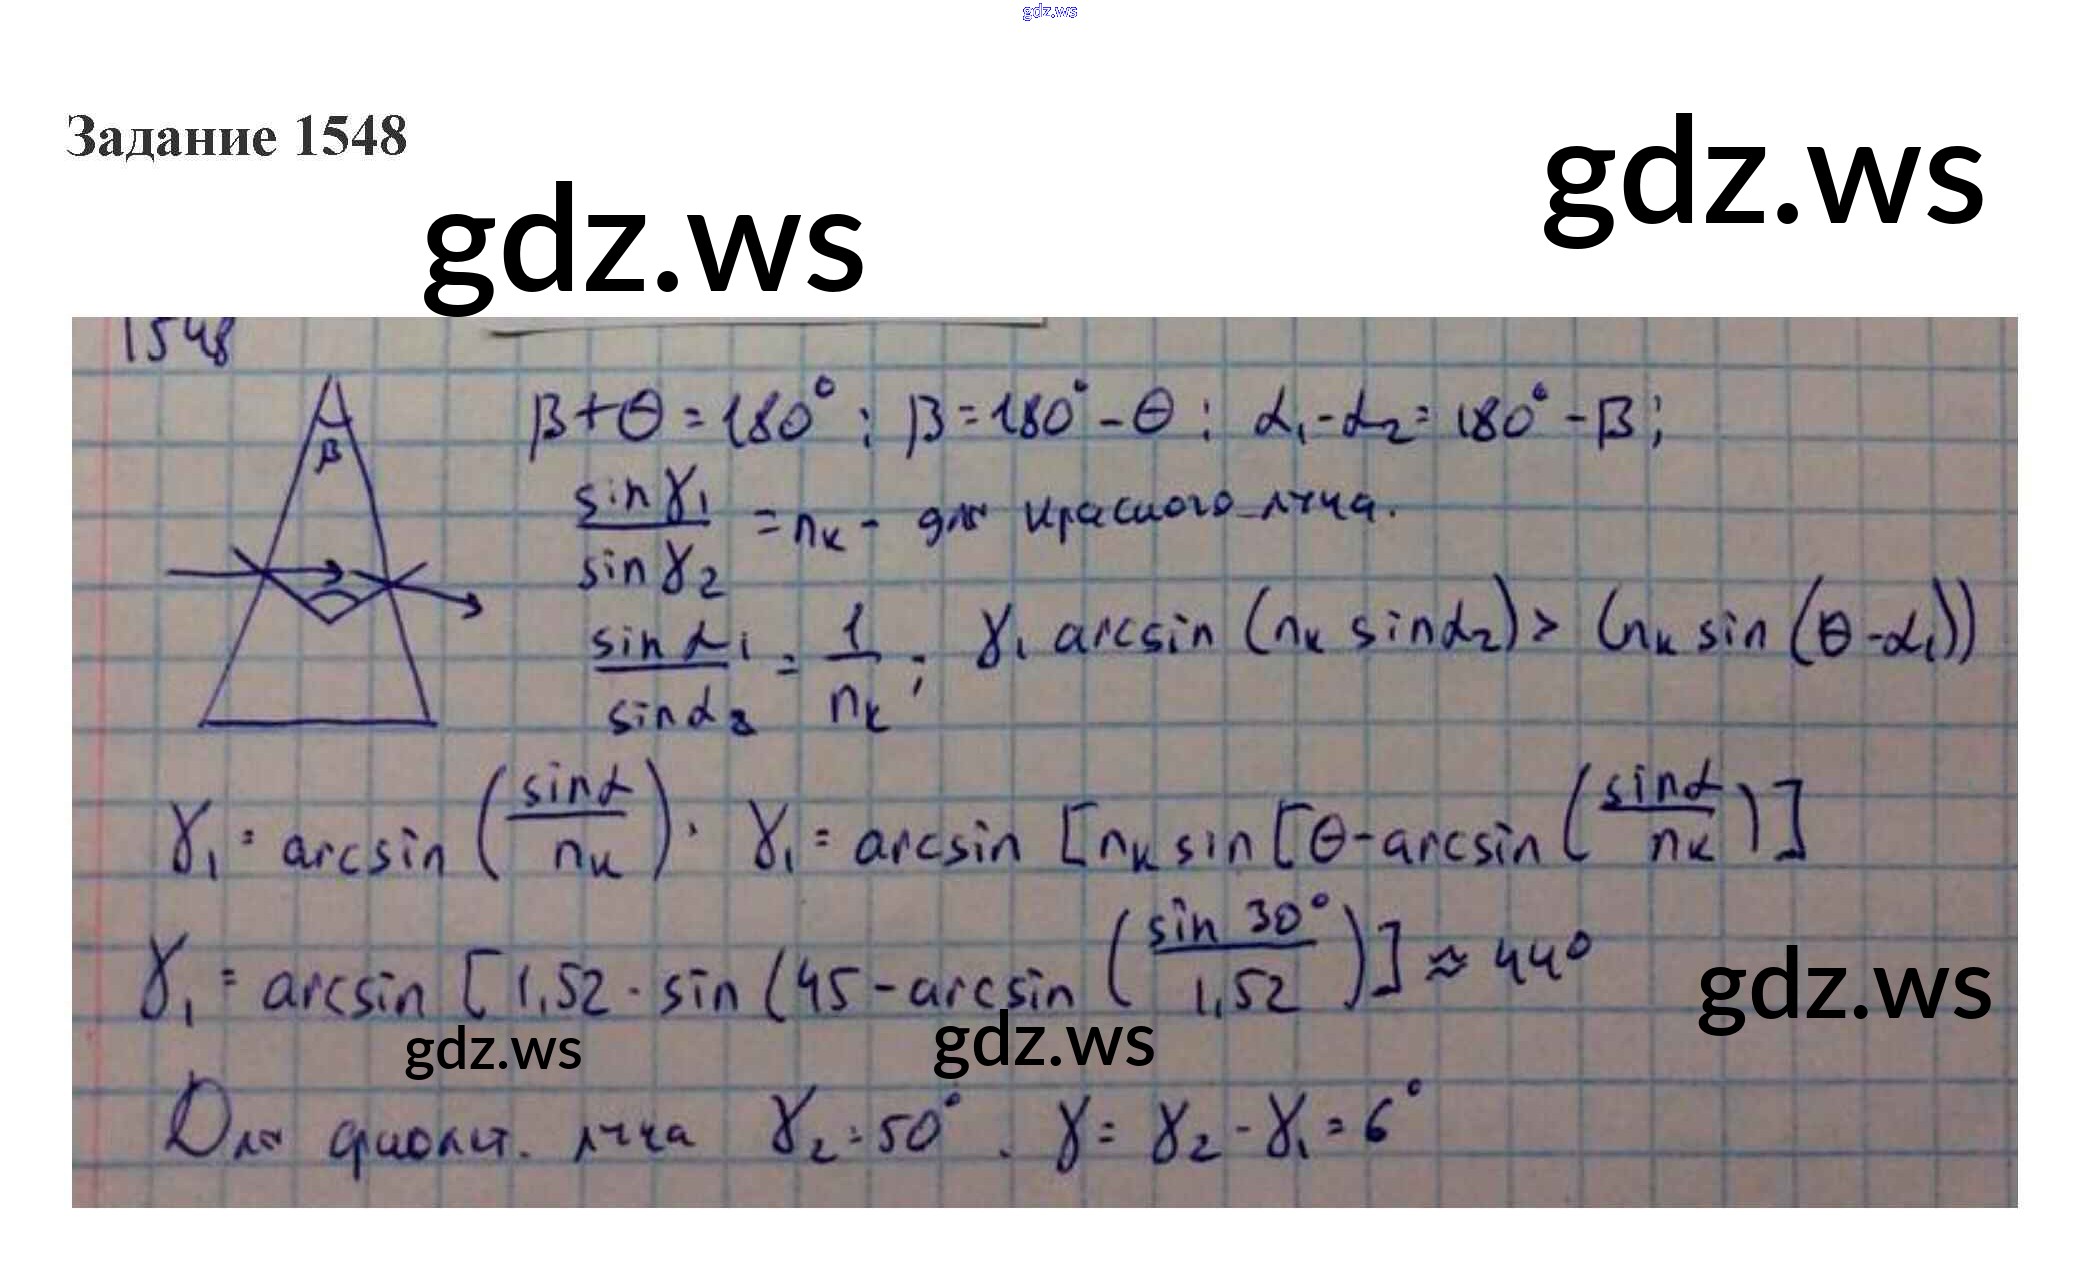 gdz.ws
Задание 1548
gdz.ws
gdz.ws
1548
β+θ=180° ; β=180°-θ ; α₁-α₂=180°-β;
β
sin γ₁ / sin γ₂ = nк - для красного луча.
sin α₁ / sin α₂ = 1 / nк ; γ₁ arcsin (nк sin α₂) > (nк sin (θ-α₁))
γ₁ = arcsin (sin α / nк). γ₁ = arcsin [nк sin [θ-arcsin (sin α / nк)]
γ₁ = arcsin [1,52 · sin (45 - arcsin (sin 30° / 1,52)] ≈ 44°
gdz.ws
gdz.ws
gdz.ws
Для фиолет. луча γ₂ = 50° . γ = γ₂ - γ₁ = 6°